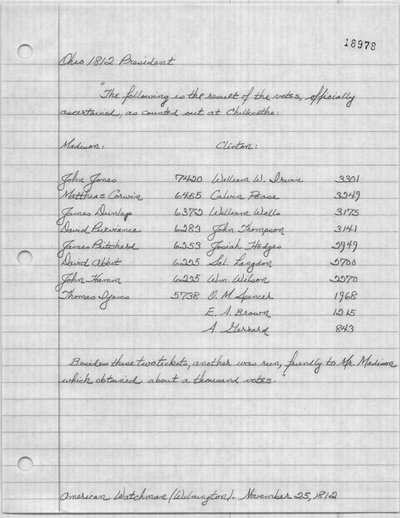 18978
Ohio 1812 President
"The following is the result of the votes, officially
ascertained, as counted out at Chillicothe:
Madison: Clinton:
John Jones 7420 William W. Irwin 3301
Matthias Corwin 6455 Calvin Pease 3249
James Dunlap 6372 William Wells 3175
David Purviance 6283 John Thompson 3141
James Pritchard 6253 Josiah Hedges 2949
David Abbot 6225 Sol. Langdon 2700
John Hamm 6225 Wm. Wilson 2270
Thomas Ijams 5738 O. M. Spencer 1968
E. A. Brown 1215
A. Gerrard 843
Besides these two tickets, another was run, friendly to Mr. Madison
which obtained about a thousand votes."
American Watchman (Wilmington). November 25, 1812